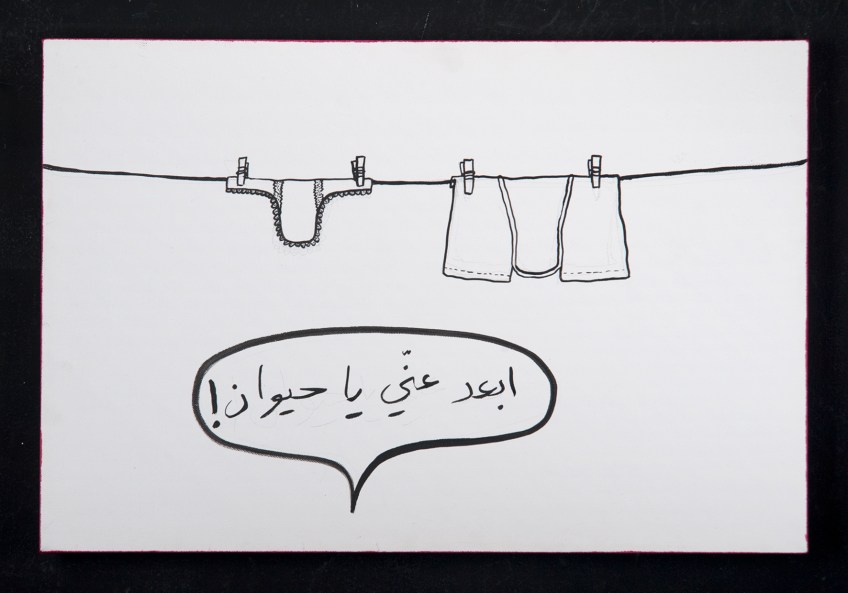 ابعد عنّي يا حيوان!